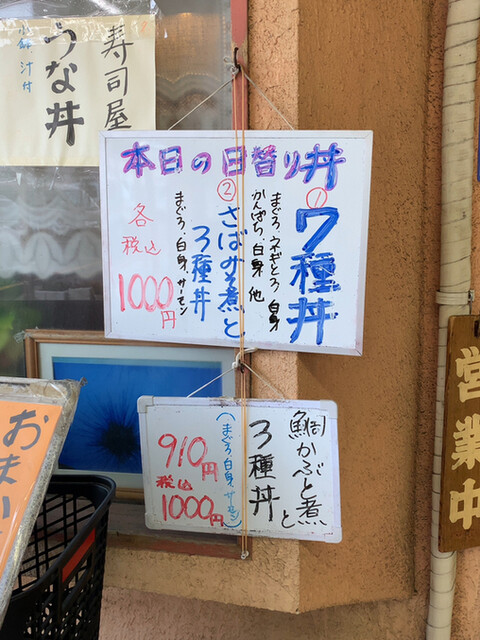 寿司屋
うな丼
汁付
本日の日替り丼
①
7種丼
まぐろ、ネギとろ、白身
かんぱち、白身 他
②
さばみそ煮と
3種丼
まぐろ、白身、サーモン
各
税込
1000円
鯛かぶと煮と
3種丼
(まぐろ、白身、サーモン)
910円
税込
1000円
おまか
営業中